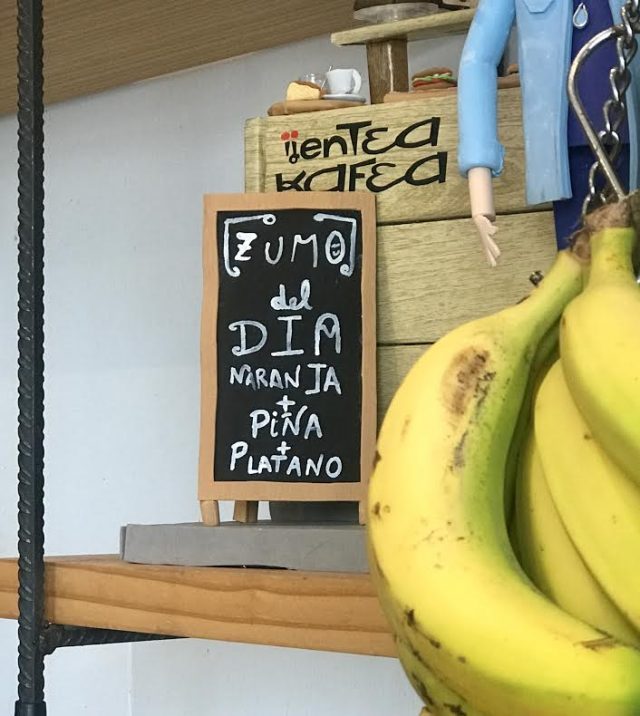 ¡¡enTEA
KAFEA
ZUMO
del
DIA
NARANJA
+
PIÑA
+
PLATANO